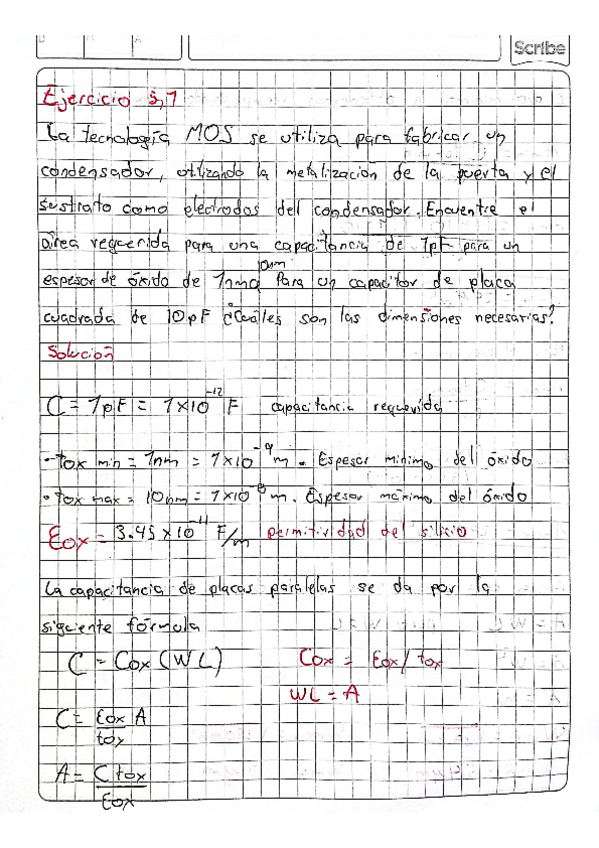 Scribe
Ejercicio 5,1
La tecnologia MOS se utiliza para fabricar un
condensador, utilizando la metalización de la puerta y el
sustrato como electrodos del condensador. Encuentre el
área requerida para una capacitancia de 1pF para un
espesor de óxido de 1nm a 10nm Para un capacitor de placa
cuadrada de 10pF ¿Cuáles son las dimensiones necesarias?
Solución
C = 1pF = 1x10^-12 F capacitancia requerida
• tox min = 1nm = 1x10^-9 m. Espesor minimo del óxido
• tox max = 10nm = 1x10^-8 m. Espesor máximo del óxido
Eox = 3.45 x10^-11 F/m permitividad del silicio
La capacitancia de placas paralelas se da por la
siguiente fórmula
C = Cox (WL) Cox = Eox/tox
WL = A
C = Eox A / tox
A = C tox / Eox